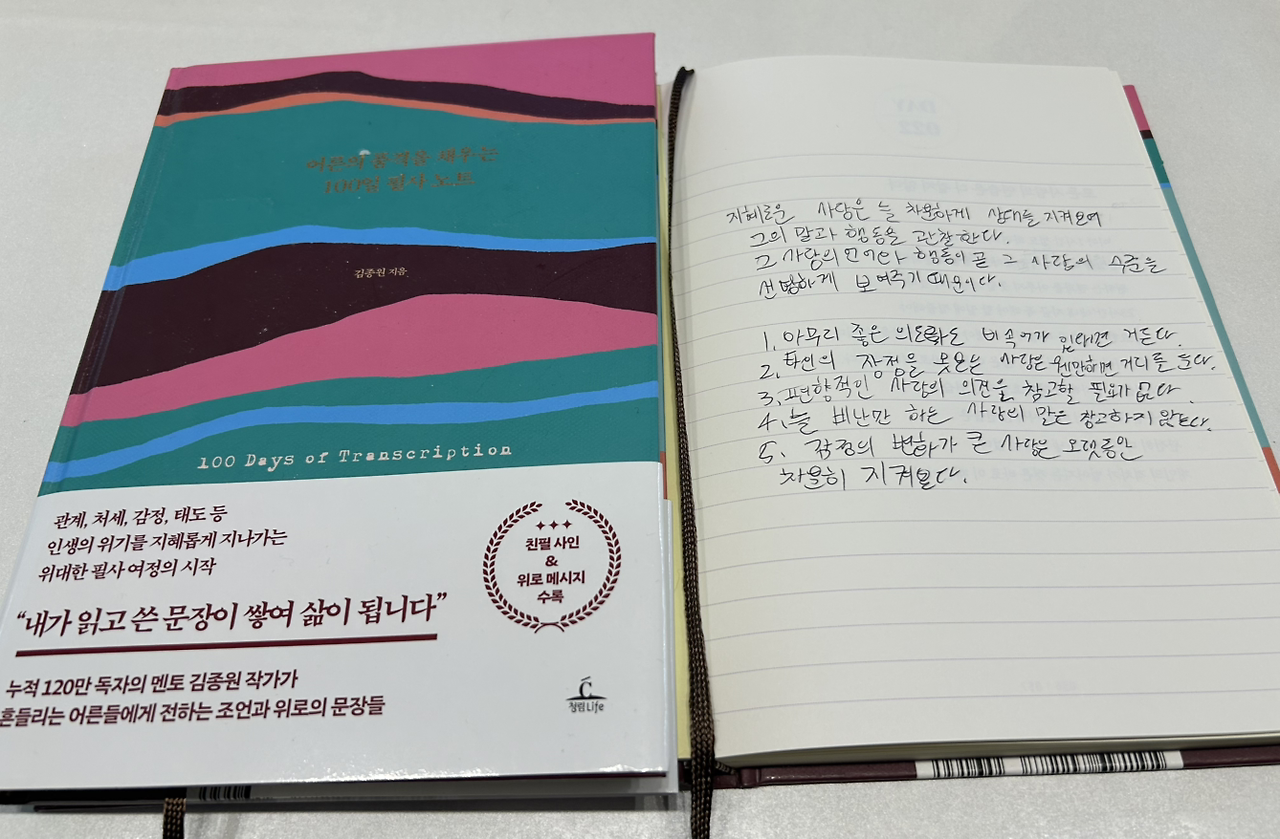 어른의 품격을 채우는
100일 필사 노트
김종원 지음
100 Days of Transcription
관계, 처세, 감정, 태도 등
인생의 위기를 지혜롭게 지나가는
위대한 필사 여정의 시작
“내가 읽고 쓴 문장이 쌓여 삶이 됩니다”
누적 120만 독자의 멘토 김종원 작가가
흔들리는 어른들에게 전하는 조언과 위로의 문장들
친필 사인
&
위로 메시지
수록
청림Life
지혜로운 사람은 늘 차분하게 상대를 지켜보며
그의 말과 행동을 관찰한다.
그 사람의 언어와 행동이 곧 그 사람의 수준을
선명하게 보여주기 때문이다.
1. 아무리 좋은 의도라도 비속어가 있다면 거른다.
2. 타인의 장점을 못보는 사람은 웬만하면 거리를 둔다.
3. 편향적인 사람의 의견을 참고할 필요가 없다.
4. 늘 비난만 하는 사람의 말은 참고하지 않는다.
5. 감정의 변화가 큰 사람은 오랫동안
차분히 지켜본다.